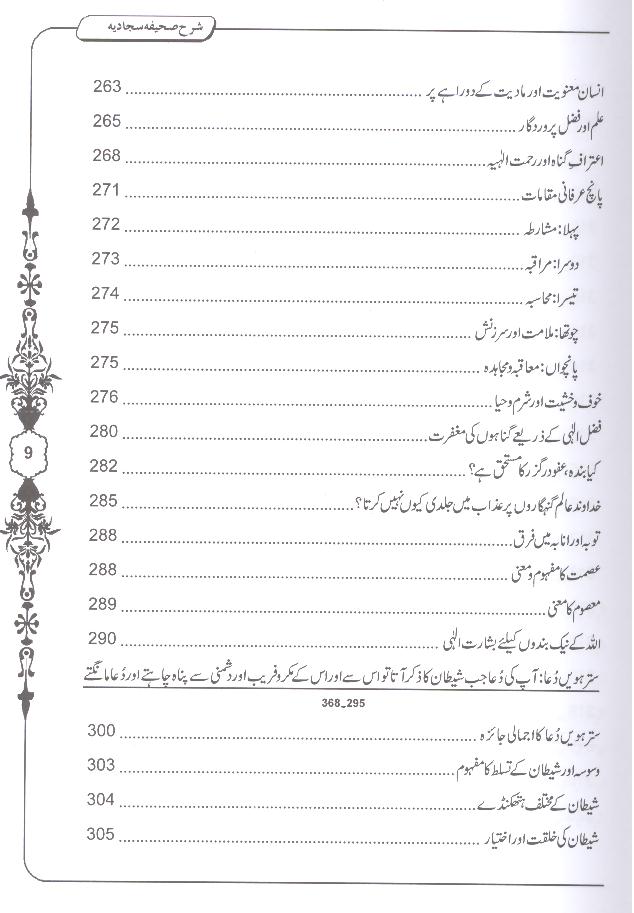 شرح صحیفہ سجادیہ
انسان معنویت اور مادیت کے دوراہے پر ........ 263
علم اور فضل پروردگار ........ 265
اعترافِ گناہ اور رحمت الٰہیہ ........ 268
پانچ عرفانی مقامات ........ 271
پہلا: مشارطہ ........ 272
دوسرا: مراقبہ ........ 273
تیسرا: محاسبہ ........ 274
چوتھا: ملامت اور سرزنش ........ 275
پانچواں: معاقبہ و مجاہدہ ........ 275
خوف و خشیت اور شرم و حیا ........ 276
فضل الٰہی کے ذریعے گناہوں کی مغفرت ........ 280
کیا بندہ، عفو درگزر کا مستحق ہے؟ ........ 282
خداوند عالم گنہگاروں پر عذاب میں جلدی کیوں نہیں کرتا؟ ........ 285
توبہ اور انابہ میں فرق ........ 288
عصمت کا مفہوم و معنی ........ 288
معصوم کا معنی ........ 289
اللہ کے نیک بندوں کیلئے بشارت الٰہی ........ 290
9
سترھویں دُعا: آپ کی دُعا جب شیطان کا ذکر آتا تو اس سے اور اس کے مکر و فریب اور دشمنی سے پناہ چاہتے اور دُعا مانگتے
368_295
سترھویں دُعا کا اجمالی جائزہ ........ 300
وسوسہ اور شیطان کے تسلط کا مفہوم ........ 303
شیطان کے مختلف ہتھکنڈے ........ 304
شیطان کی خلقت اور اختیار ........ 305